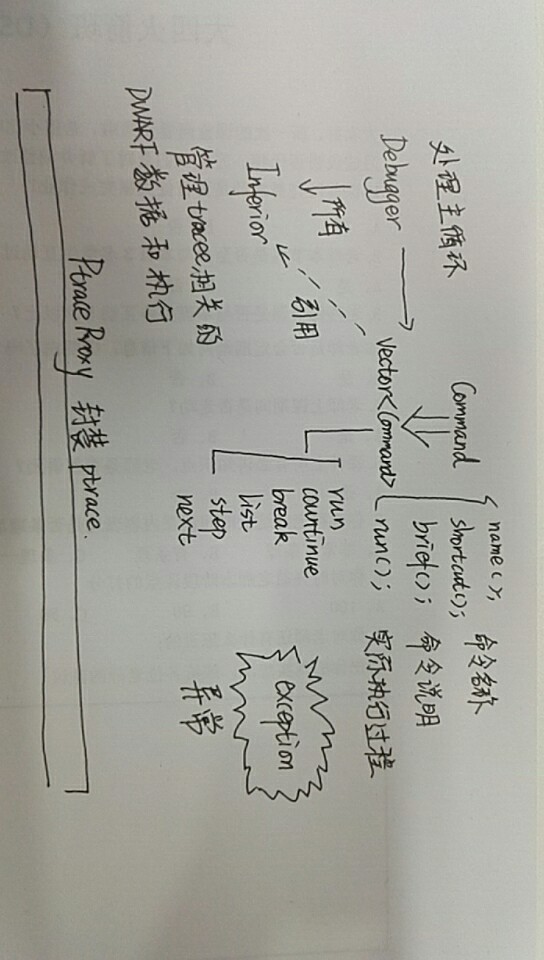 处理主循环
Debugger
所有
Inferior
管理tracee相关的
DWARF数据和执行
引用
Command
vector<Command>
name();
shortcut();
命令名称
brief();
命令说明
run();
实际执行过程
run
countinue
break
list
step
next
exception
异常
PtraceProxy 封装ptrace.